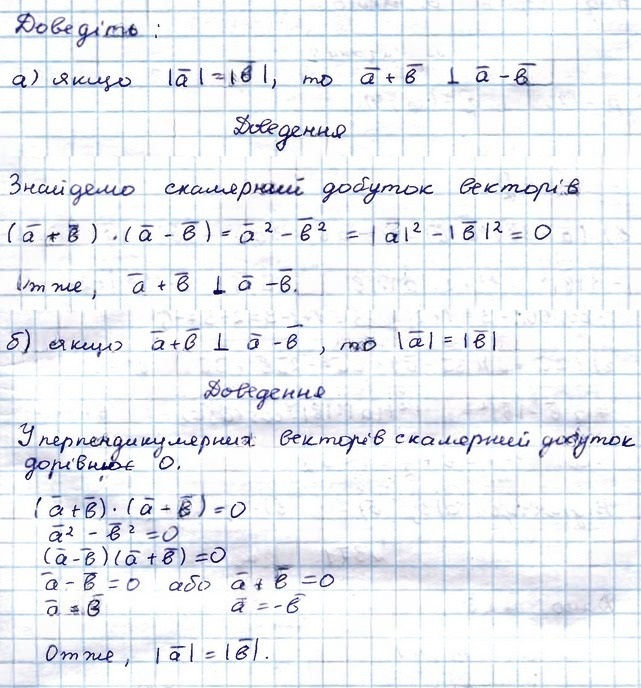 Доведіть:
а) якщо |a̅| = |b̅|, то a̅ + b̅ ⊥ a̅ - b̅
Доведення
Знайдемо скалярний добуток векторів
(a̅ + b̅) · (a̅ - b̅) = a̅² - b̅² = |a̅|² - |b̅|² = 0
Отже, a̅ + b̅ ⊥ a̅ - b̅.
б) якщо a̅ + b̅ ⊥ a̅ - b̅, то |a̅| = |b̅|
Доведення
У перпендикулярних векторів скалярний добуток
дорівнює 0.
(a̅ + b̅) · (a̅ - b̅) = 0
a̅² - b̅² = 0
(a̅ - b̅)(a̅ + b̅) = 0
a̅ - b̅ = 0 або a̅ + b̅ = 0
a̅ = b̅ a̅ = -b̅
Отже, |a̅| = |b̅|.